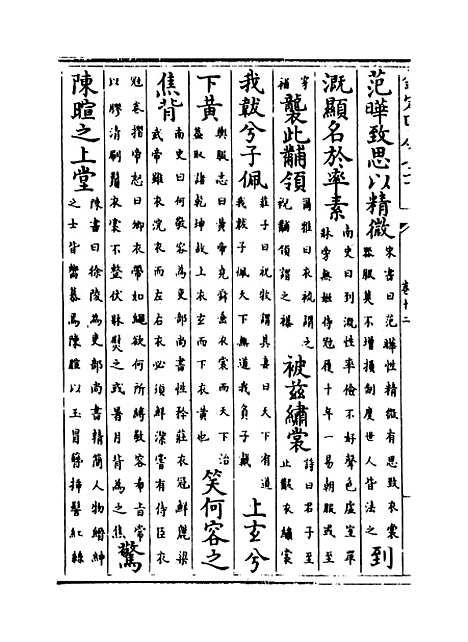 卷十二
范曄致思以精微
宋書曰范曄性精微有思致衣裳
器服莫不增損制度世人皆法之
到
溉顯名於率素
南史曰到溉性率儉不好聲色虛室單
牀旁無姬侍冠履十年一易朝服或至
穿
補
襲此黼領
爾雅曰衣
謂之
黼領謂之襮
被兹繡裳
詩曰君子至
止黻衣繡裳
我韍兮子佩
莊子曰祝牧謂其妻曰天下有道
我韍子佩天下無道我負子戴
上玄兮
下黄
輿服志曰黄帝堯舜垂衣裳而天下治
蓋取諸乾坤故上衣玄而下衣黄也
笑何容之
焦背
南史曰何敬容為吏部尚書性矜莊衣冠鮮麗梁
武帝雖衣浣衣而左右衣必須鮮潔嘗有侍臣衣
冠卷摺帝怒曰卿衣帶如繩欲何所縛敬容布旨常
以膠清刷鬚衣裳不整伏牀熨之或暑月背為之焦
驚
陳暄之上堂
陳書曰徐陵為吏部尚書精簡人物縉紳
之士皆嚮慕焉陳暄以玉冒簪插髻紅絲